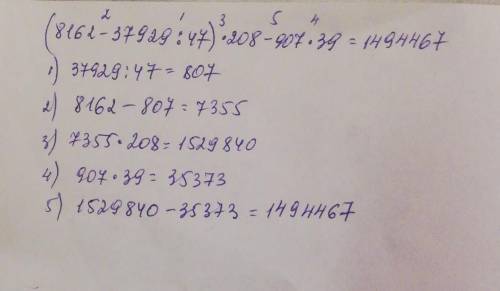 (8162-37929:47)·208-907·39=1494467
2 1 3 5 4
1) 37929:47=807
2) 8162-807=7355
3) 7355·208=1529840
4) 907·39=35373
5) 1529840-35373=1494467